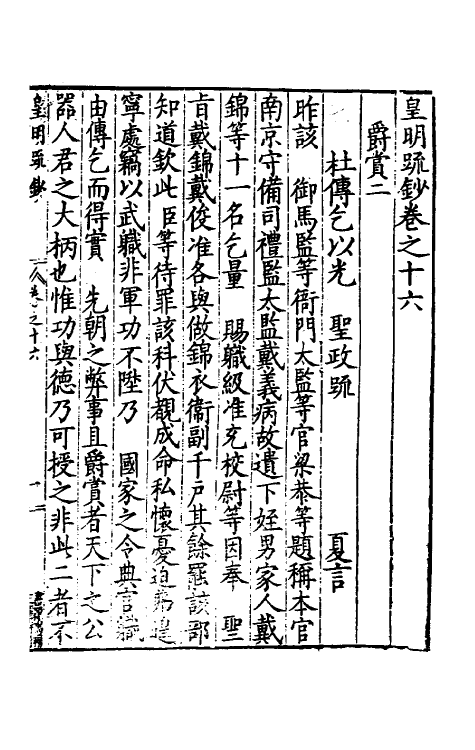 皇明疏鈔卷之十六
爵賞二
杜傳乞以光　聖政疏　夏言
昨該　御馬監等衙門太監等官梁恭等題稱本官
南京守備司禮監太監戴義病故遺下姪男家人戴
錦等十一名乞量　賜職級准充校尉等因奉　聖
旨戴錦戴俊准各與做錦衣衞副千戶其餘罷該部
知道欽此臣等待罪該科伏覩成命私懷憂迫弗遑
寧處竊以武職非軍功不陞乃　國家之令典言職
由傳乞而得實　先朝之弊事且爵賞者天下之公
器人君之大柄也惟功與德乃可授之非此二者不
皇明疏鈔　卷之十六　一